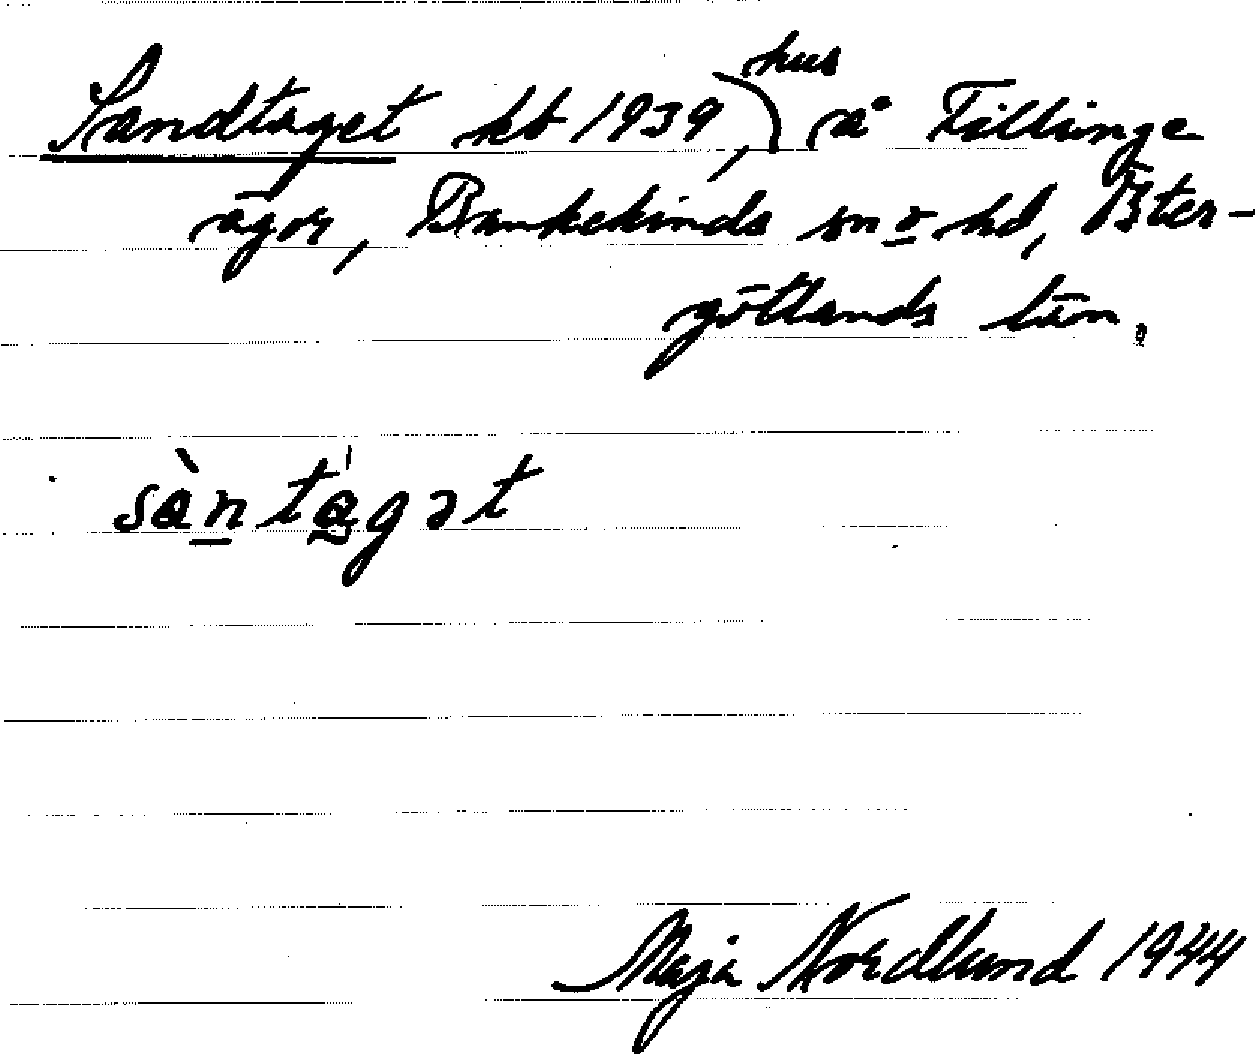 Sandtaget kb 1939, hus å Fillinge
ägor, Bankekinds sn o hd, Öster-
götlands län.
sàntágət
Maja Nordlund 1944